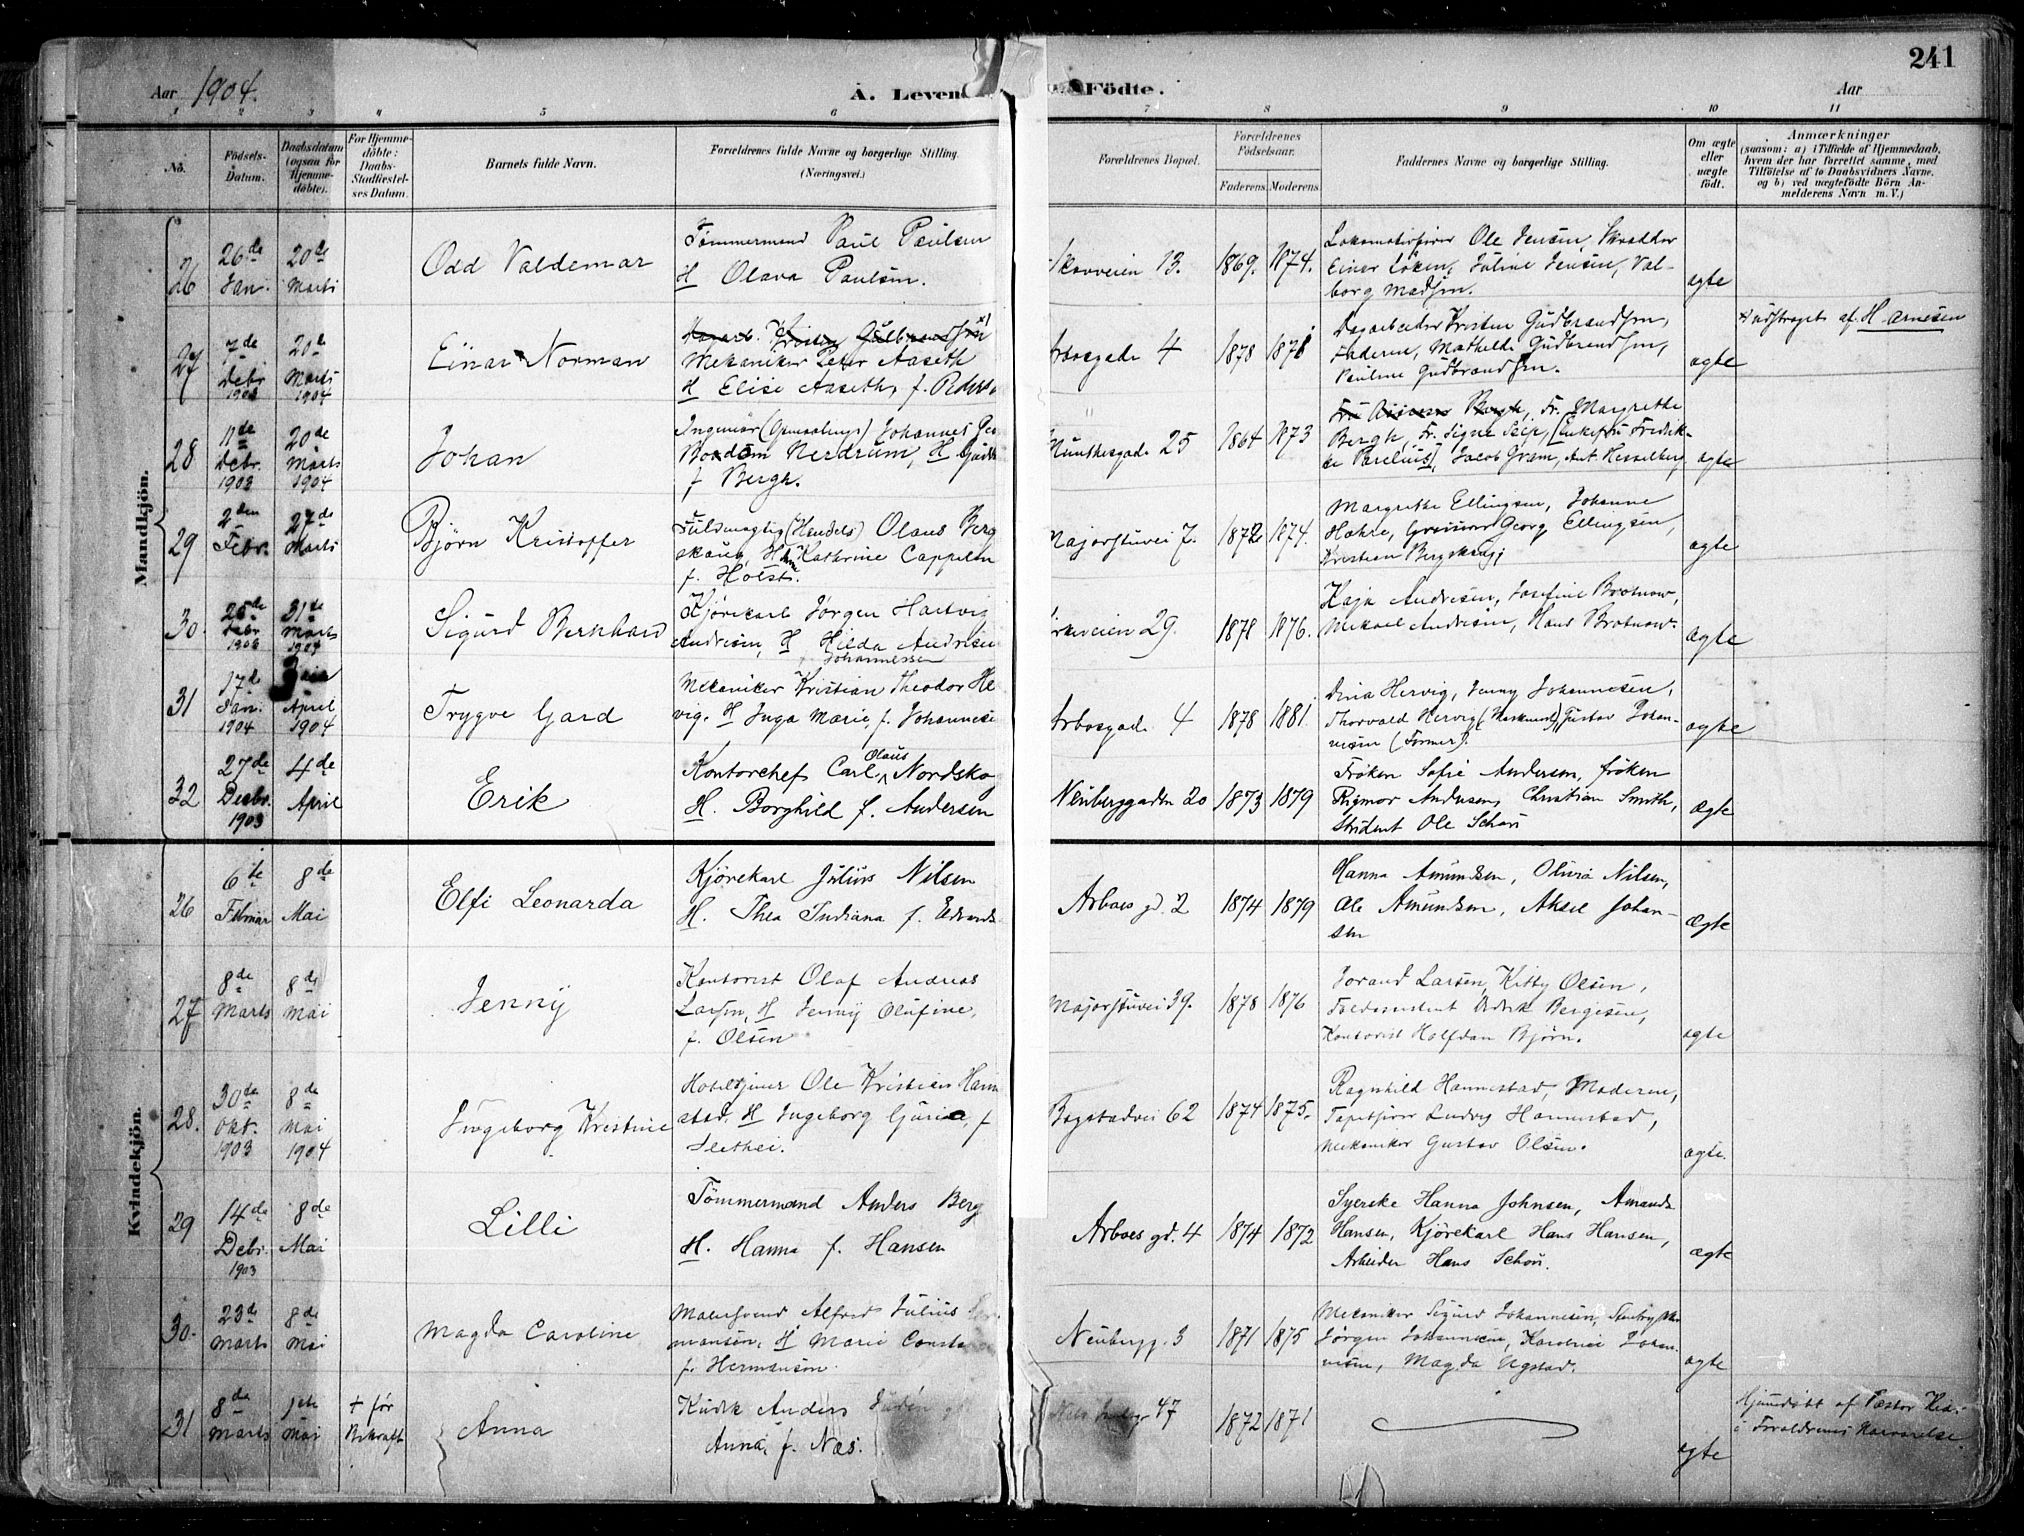 241
Aar 1904. A. Leven Födte. Aar
1 2 3 4 5 6 7 8 9 10 11
No. Födsels-Datum. Daabsdatum (ogsaa for Hjemmedöbte). For Hjemmedöbte: Daabs-Stadfæstelses Datum. Barnets fulde Navn. Forældrenes fulde Navne og borgerlige Stilling. (Næringsvei.) Forældrenes Bopæl. Forældrenes Födselsaar. Faderens. Moderens. Faddernes Navne og borgerlige Stilling. Om ægte eller uægte födt. Anmærkninger (saasom: a) i Tilfælde af Hjemmedaab, hvem der har forrettet samme, med Tilföielse af to Daabsvidners Navne, og b) ved uægtefödte Börn Anmelderens Navn m.V.)
Mandkjön.
26 26de Jan. 20de Marts
Odd Valdemar
Tömmermand Paul Paulsen
H Olava Paulsen.
13. 1869. 1874.
Lokomotivfører Ole Jensen, Skrædder
Einar Löken, Juline Jensen, Val-
borg Madsen.
ægte
27 7de Debr 1903 20de Marts 1904
Einar Norman
Mekaniker Peter Aaseth
H Elise Aaseth, f.
4 1878 1871
Dagarbeider Kristen Gudbrandsen,
Faderen, Mathilde Gudbrandsen,
Pauline Gudbrandsen.
ægte
af H Arnesen
28 11de Debr. 1903 20de Marts 1904
Johan
Ingeniør (Opmaalings) Johannes
Nerdrum, H
f Bergh.
25 1864 1873
Fr. Margrethe
Bergh, Fr. Signe Seip, (Enkefru Fredrik-
ke Parelius), Jacob Gram, Ant. Hesselberg
ægte
29 2den Febr. 27de Marts
Björn Kristoffer
Fuldmægtig (Handels) Olaus Berg
skaug, H Kathrine Cappelen
f. Holst.
Majorstuvei 7. 1872 1874.
Margrethe Ellingsen, Johanne
Georg Ellingsen,
Kristian Bergskaug;
ægte
30. 25de Debr 1903 31te Marts 1904
Sigurd Bernhard
Kjörekarl Jørgen Hartvig
Andresen, H Hilda Andresen
Johannessen
29. 1878 1876.
Kaja Andresen, Josefine Brotnow,
Mikael Andresen, Hans Brotnow.
ægte
31 17de Jan. 1904 3die April 1904
Trygve Gard
Mekaniker Kristian Theodor He
vig. H Inga Marie, f. Johannese
4 1878 1881.
Dina Hervig, Jenny Johannesen,
Thorvald Hervig (Maskinist), Gustav Johan-
nesen (Former).
ægte
32 27de Decbr. 1903 4de April
Erik
Kontorchef Carl Olaus Nordsko
H. Borghild f. Andersen
Neuberggaden 20 1873 1879
Fröken Sofie Andersen, fröken
Rigmor Andersen, Christian Smith,
Student Ole Schou
Ægte
Kvindekjön.
26 6te Februar 8de Mai
Elfi Leonarda
Kjörekarl Julius Nilsen
H. Thea Indiana f.
Arboes gd. 2 1874 1879
Hanna Amundsen, Olivia Nilsen,
Ole Amundsen, Aksel Johan-
sen
Ægte
27 8de Marts 8de Mai
Jenny
Kontorist Olaf Andreas
Larsen, H Jenny Olufine,
f. Olsen
Majorstuvei 39. 1878 1876
Jorand Larsen, Kitty Olsen,
Didrik Bergesen,
Kontorist Halfdan Björn.
ægte
28. 30de Okt. 1903 8de Mai 1904
Ingeborg Kristine
Ole Kristian Hann
stad, H Ingeborg f
Slethei.
Bogstadvei 62 1874 1875.
Ragnhild Hannestad, Moderen,
Ludvig Hannestad,
Mekaniker Gustav Olsen.
ægte.
29 14de Debr. 1903 8de Mai
Lilli
Tömmermand Anders Berg
H. Hanna f. Hansen
Arboes gd. 4 1874 1872
Syerske Hanna Johnsen, Amanda
Hansen, Kjörekarl Hans Hansen,
Arbeider Hans Schou.
ægte
30. 23de Marts 8de Mai
Magda Caroline
Malersvend Alfred Julius
mansen, H Marie
f. Hermansen.
Neubergg. 3 1871 1875
Mekaniker Sigurd Johannesen,
Jørgen Johannesen, Karoline Johan-
nesen, Magda Ugstad.
ægte
31 8de Marts Mai + før Bekræft
Anna
Kudsk Anders
Anna, f. Næs.
47 1872 1871
ægte
Hjemdöbt af Pastor
i Forældrenes Nærværelse